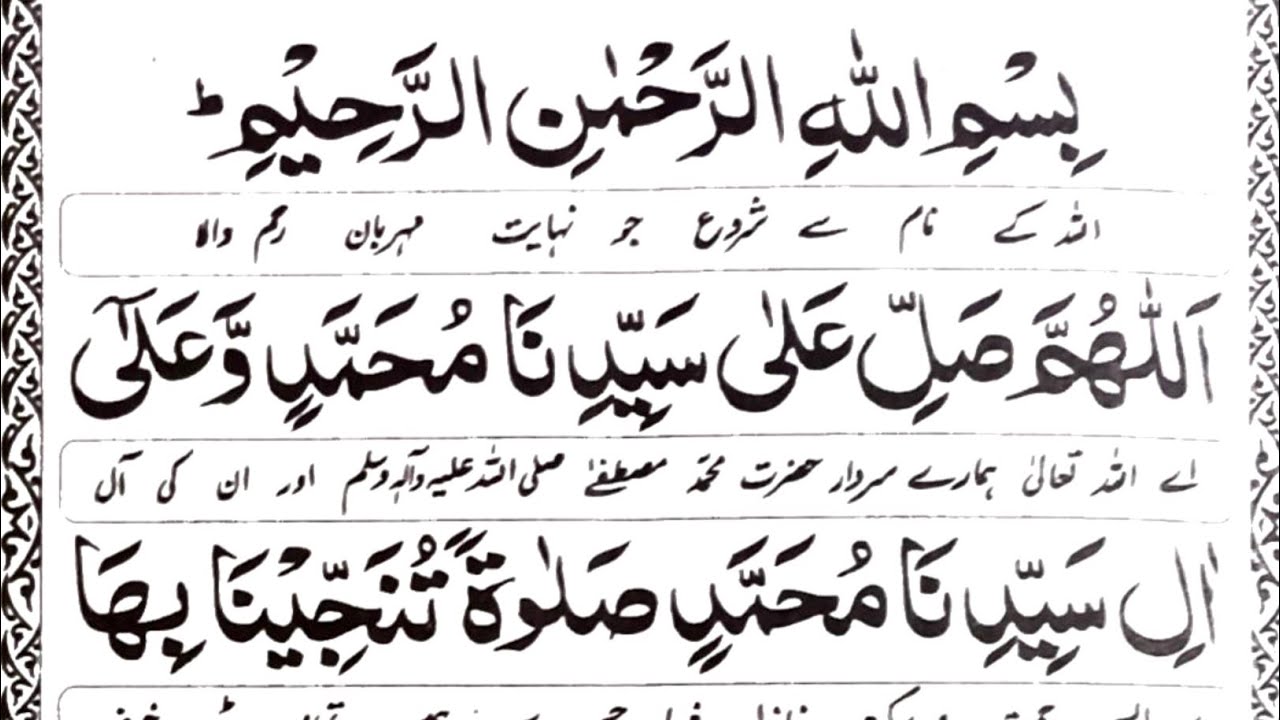 بِسْمِ اللّٰهِ الرَّحْمٰنِ الرَّحِيْمِ ؕ
اللہ کے نام سے شروع جو نہایت مہربان رحم والا
اَللّٰهُمَّ صَلِّ عَلٰى سَيِّدِنَا مُحَمَّدٍ وَّعَلٰٓى
اے اللہ تعالیٰ ہمارے سردار حضرت محمد مصطفےٰ صلی اللہ علیہ وآلہٖ وسلم اور ان کی آل
اٰلِ سَيِّدِنَا مُحَمَّدٍ صَلٰوةً تُنَجِّيْنَا بِهَا